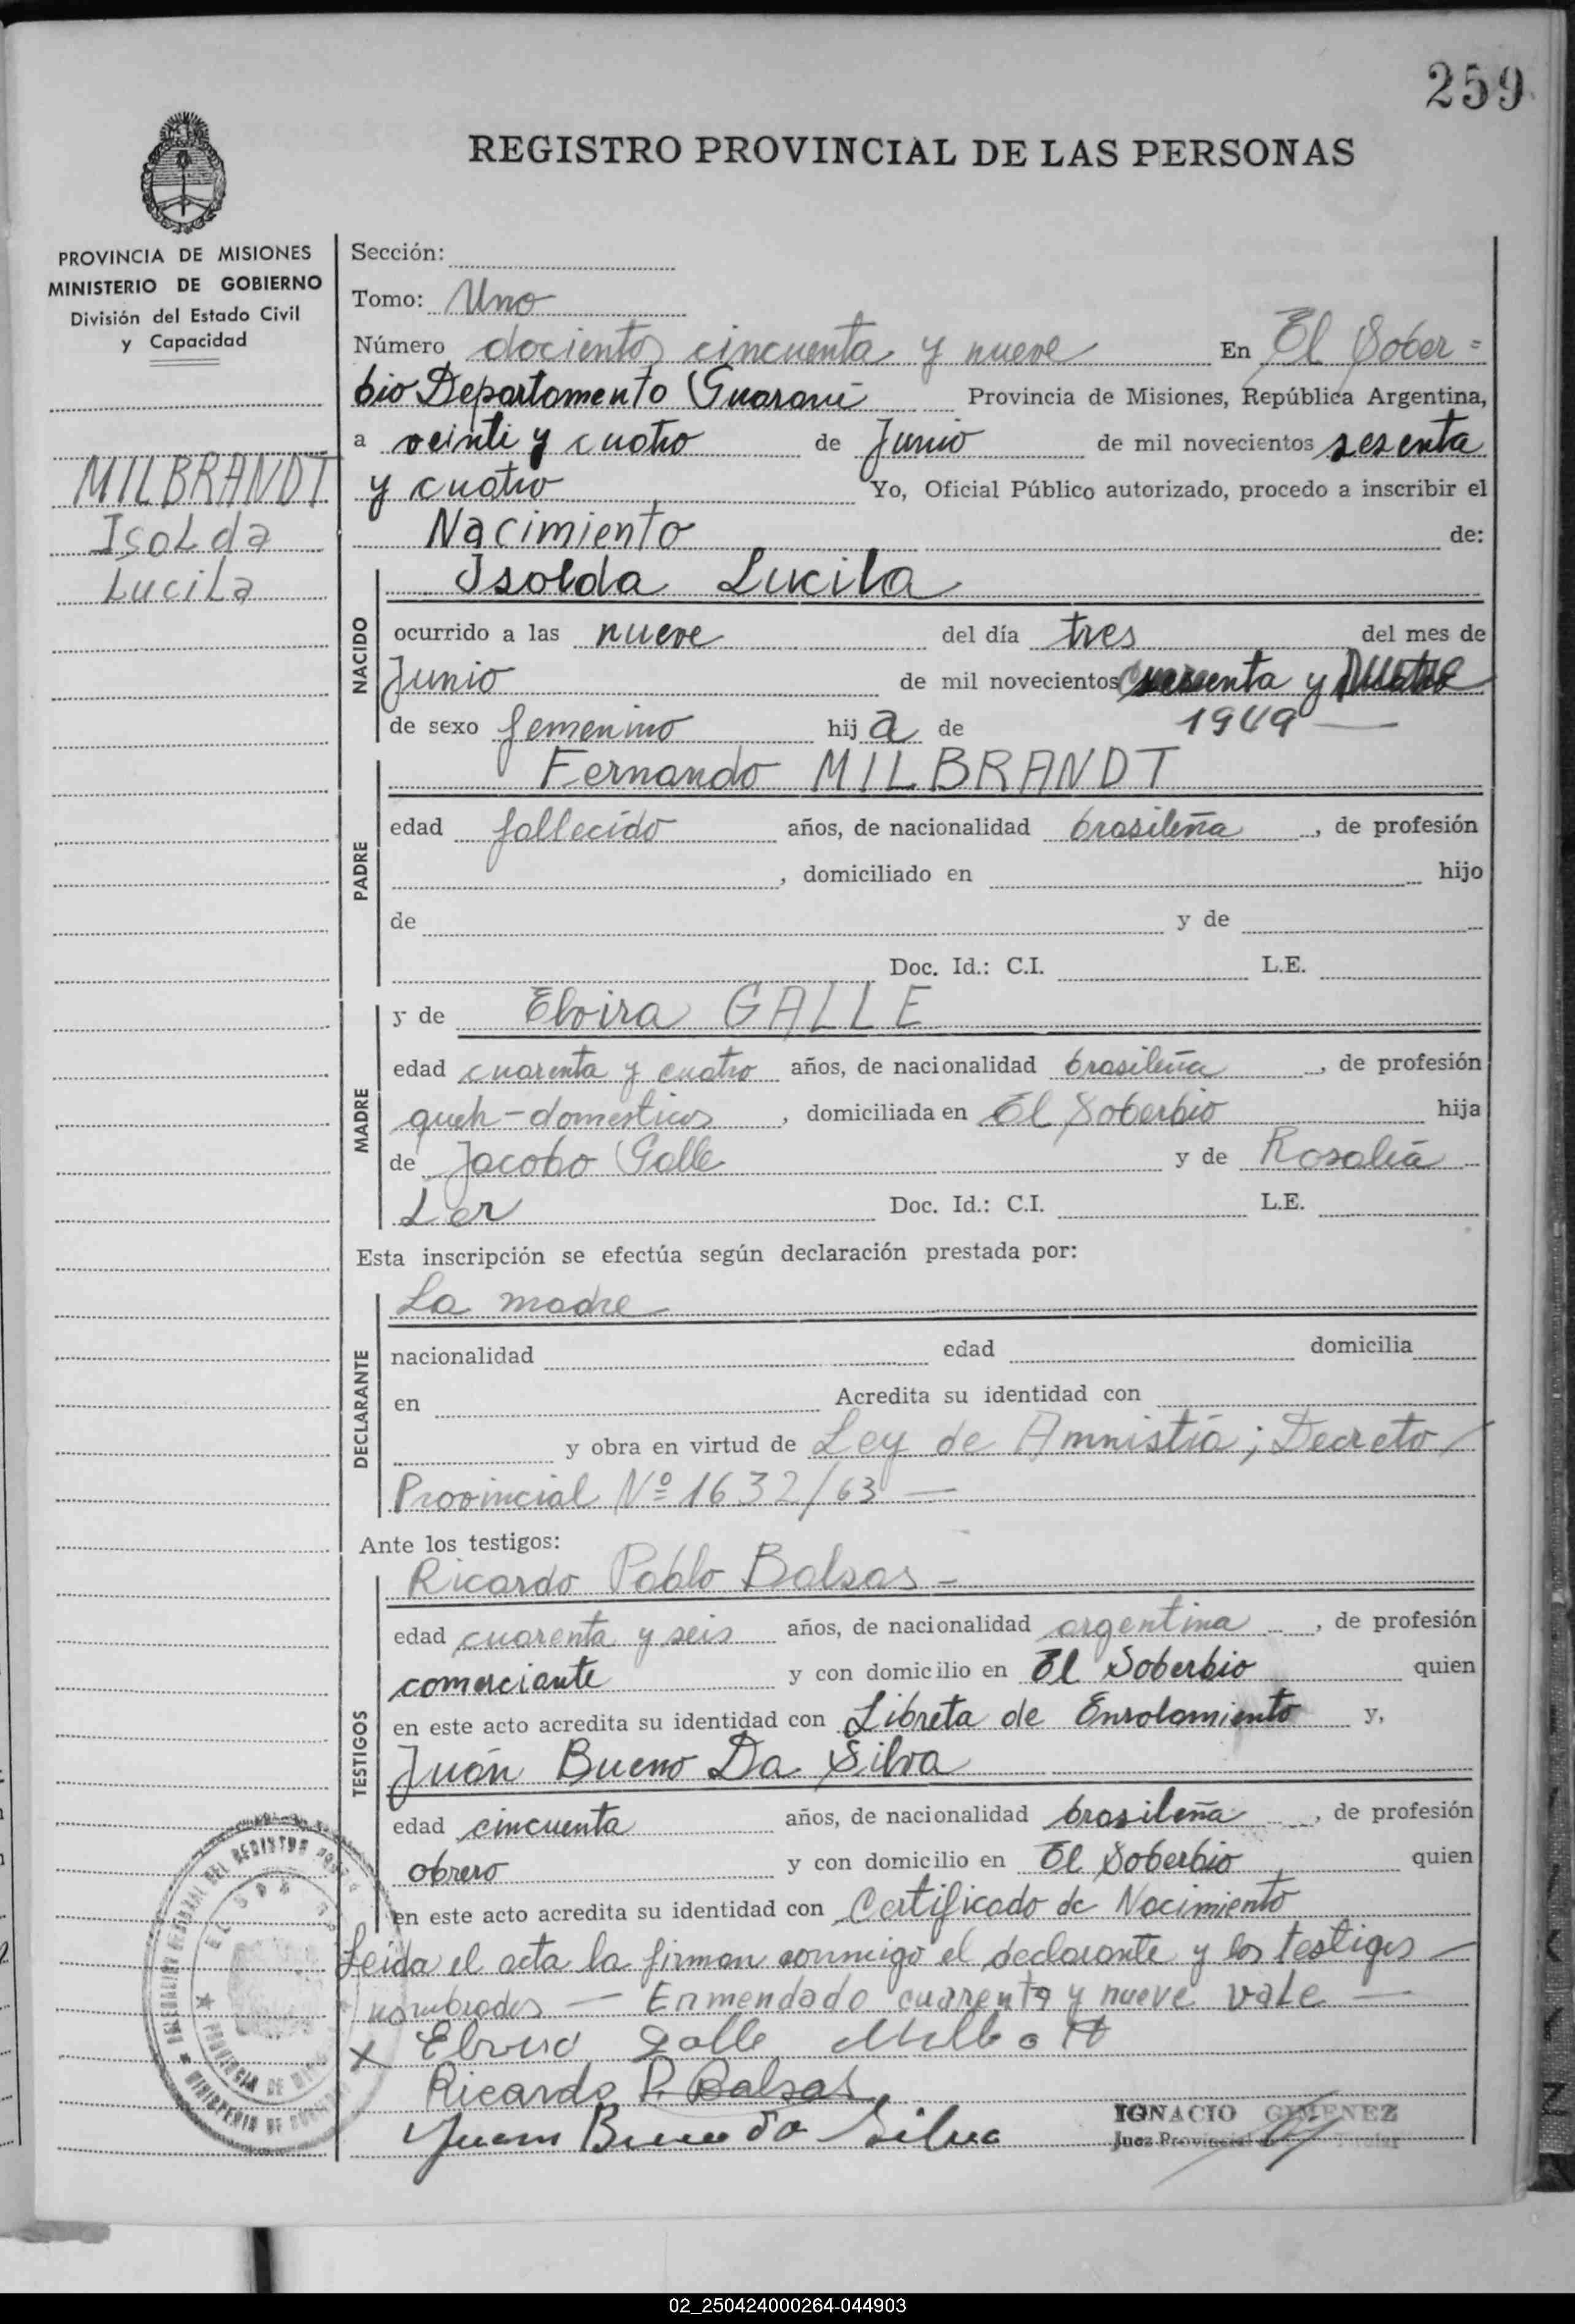 259
REGISTRO PROVINCIAL DE LAS PERSONAS
PROVINCIA DE MISIONES
MINISTERIO DE GOBIERNO
División del Estado Civil
y Capacidad
MILBRANDT
Isolda
Lucila
Sección:
Tomo: Uno
Número docientos cincuenta y nueve En El Sober=
bio Departamento Guaraní Provincia de Misiones, República Argentina,
a veinti y cuatro de Junio de mil novecientos sesenta
y cuatro Yo, Oficial Público autorizado, procedo a inscribir el
Nacimiento de:
NACIDO
Isolda Lucila
ocurrido a las nueve del día tres del mes de
Junio de mil novecientos y
1949
de sexo femenino hij a de
PADRE
Fernando MILBRANDT
edad fallecido años, de nacionalidad brasileña, de profesión
, domiciliado en hijo
de y de
Doc. Id.: C.I. L.E.
MADRE
y de Elvira GALLE
edad cuarenta y cuatro años, de nacionalidad brasileña, de profesión
queh-domesticos, domiciliada en El Soberbio hija
de Jacobo Galle y de Rosalía
Ler Doc. Id.: C.I. L.E.
Esta inscripción se efectúa según declaración prestada por:
DECLARANTE
La madre
nacionalidad edad domicilia
en Acredita su identidad con
y obra en virtud de Ley de Amnistía; Decreto
Provincial Nº 1632/63
Ante los testigos:
TESTIGOS
Ricardo Pablo Balsas
edad cuarenta y seis años, de nacionalidad argentina, de profesión
comerciante y con domicilio en El Soberbio quien
en este acto acredita su identidad con Libreta de Enrolamiento y,
Juán Bueno Da Silva
edad cincuenta años, de nacionalidad brasileña, de profesión
obrero y con domicilio en El Soberbio quien
en este acto acredita su identidad con Certificado de Nacimiento
Leida el acta la firman conmigo el declarante y los testigos
nombrados — Enmendado cuarenta y nueve vale —
x Galle
Ricardo P. Balsas
Juan Bueno da Silva
IGNACIO GIMENEZ
Juez Provincial
02_250424000264-044903